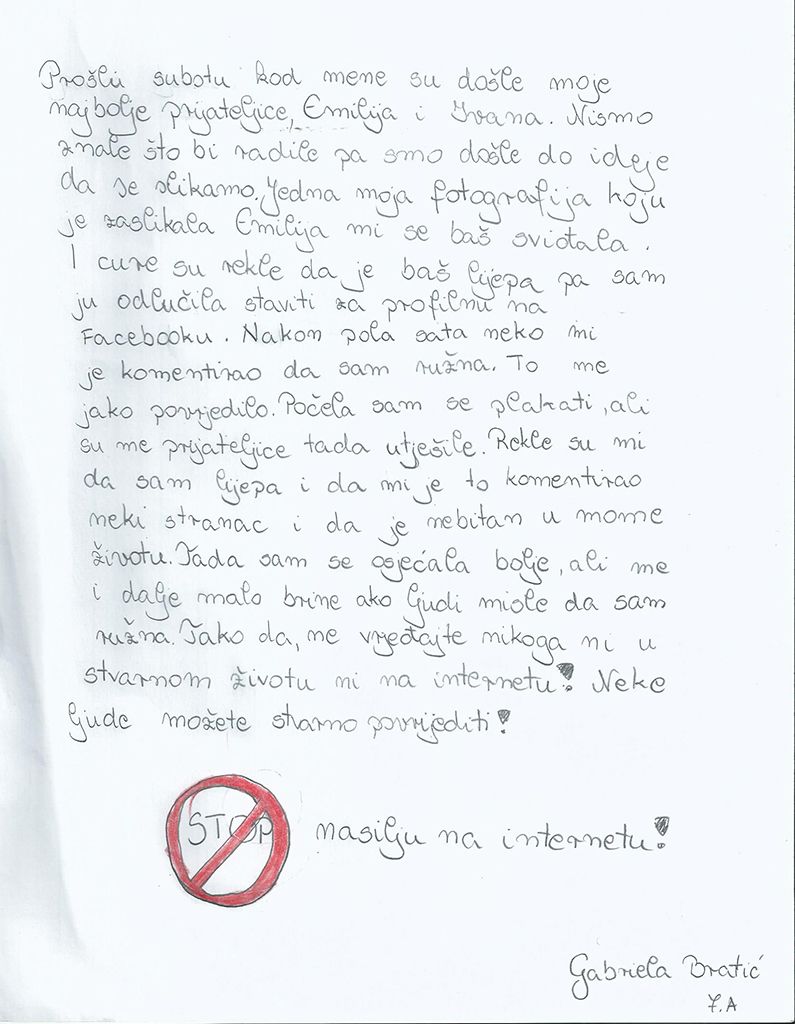 Prošlu subotu kod mene su došle moje
najbolje prijateljice, Emilija i Ivana. Nismo
znale što bi radile pa smo došle do ideje
da se slikamo. Jedna moja fotografija koju
je zaslikala Emilija mi se baš sviđala.
I cure su rekle da je baš lijepa pa sam
ju odlučila staviti za profilnu na
Facebooku. Nakon pola sata neko mi
je komentirao da sam ružna. To me
jako povrjedilo. Počela sam se plakati, ali
su me prijateljice tada utješile. Rekle su mi
da sam lijepa i da mi je to komentirao
neki stranac i da je nebitan u mome
životu. Tada sam se osjećala bolje, ali me
i dalje malo brine ako ljudi misle da sam
ružna. Tako da, ne vrjeđajte nikoga ni u
stvarnom životu ni na internetu! Neke
ljude možete stvarno povrijediti!
STOP nasilju na internetu!
Gabriela Bratić
7.A